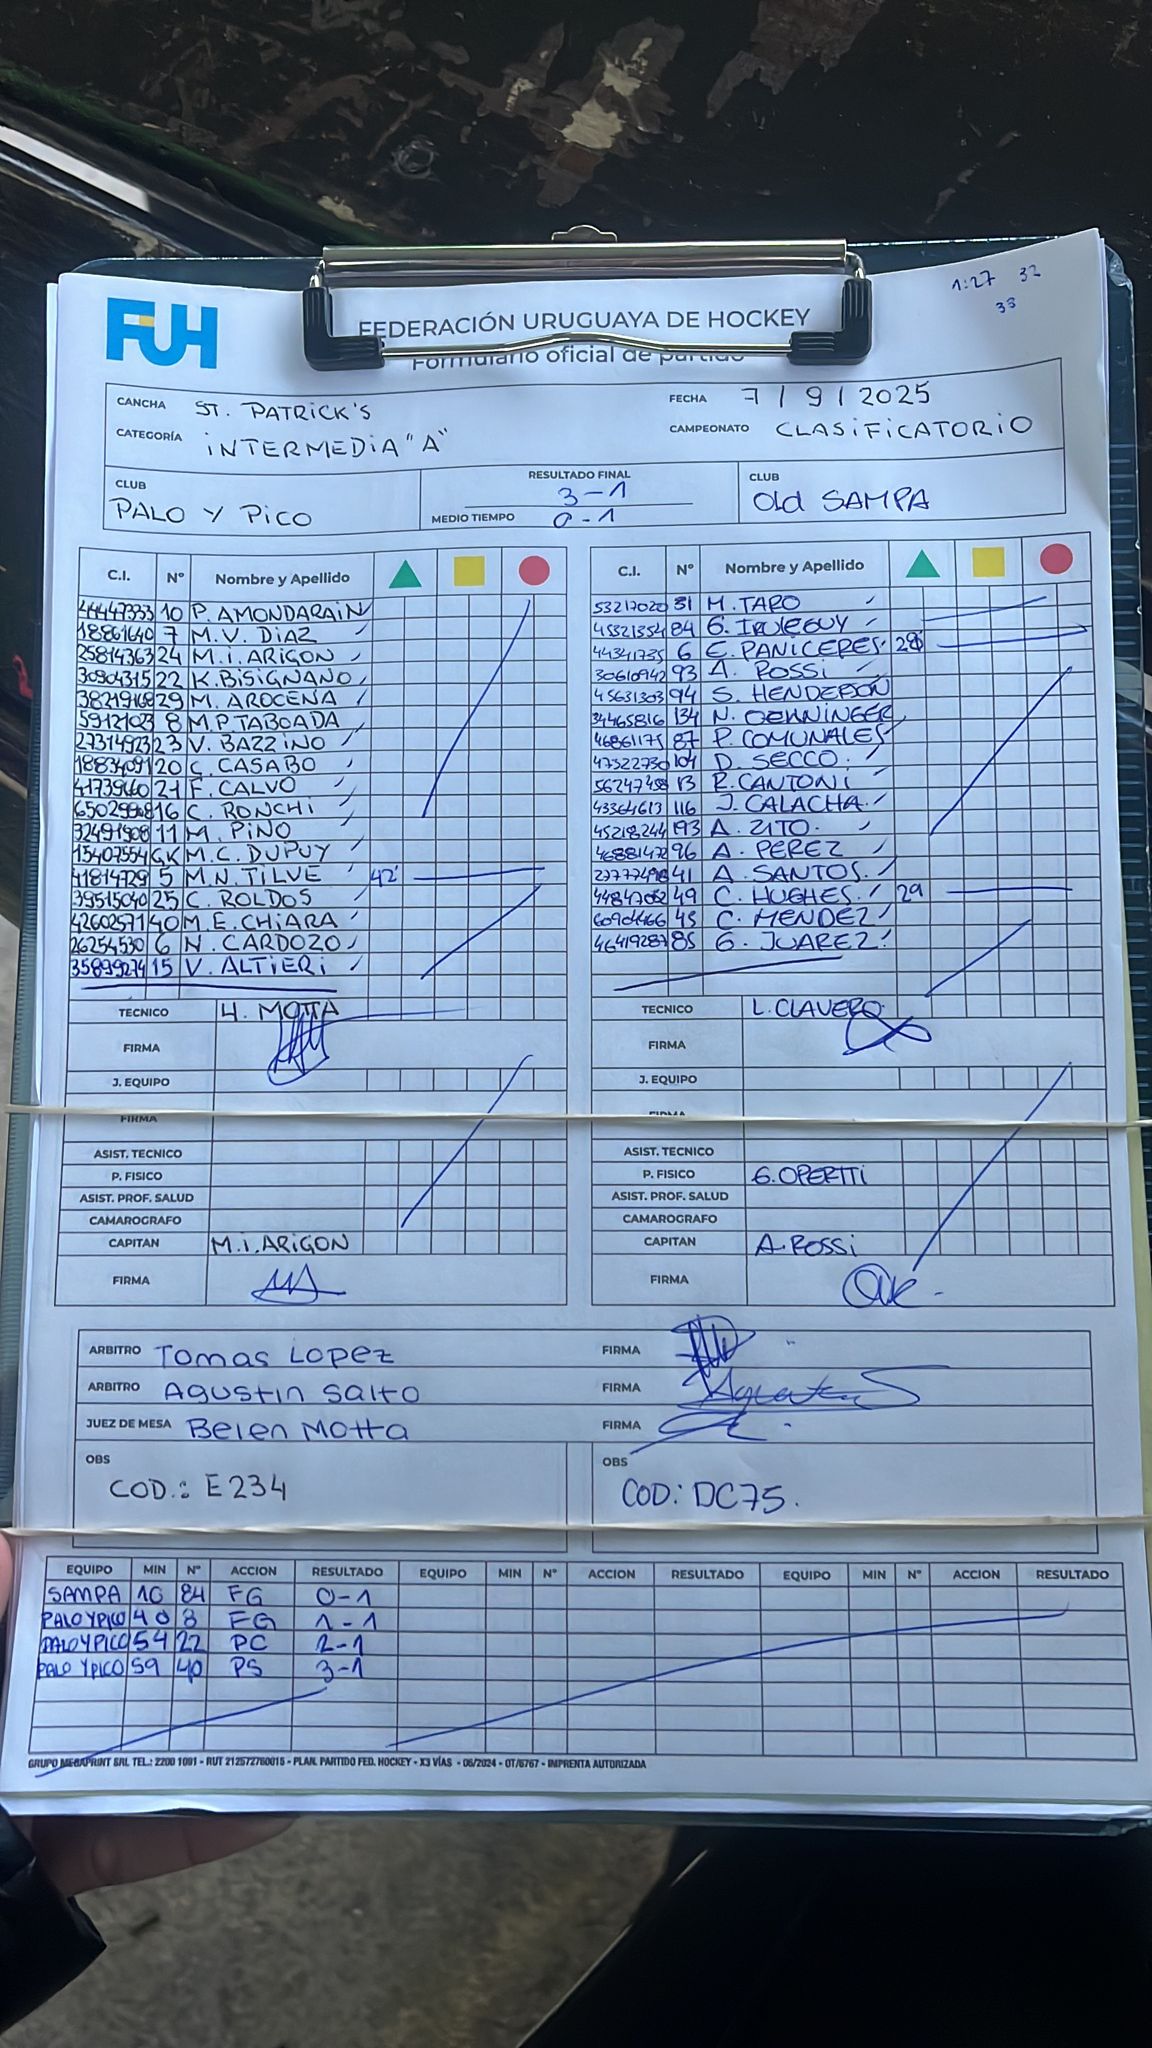 1:27 32
33
FUH
FEDERACIÓN URUGUAYA DE HOCKEY
Formulario oficial de partido
CANCHA ST. PATRICK'S FECHA 7/9/2025
CATEGORÍA INTERMEDIA "A" CAMPEONATO CLASIFICATORIO
CLUB PALO Y PICO RESULTADO FINAL 3-1 CLUB Old SAMPA
MEDIO TIEMPO 0-1
C.I. Nº Nombre y Apellido
44447333 10 P. AMONDARAIN
18861640 7 M.V. DIAZ
25814363 24 M.I. ARIGON
30904315 22 K. BISIGNANO
38219168 29 M. AROCENA
59121023 8 M.P. TABOADA
27314923 23 V. BAZZINO
18834091 20 C. CASABO
41739660 21 F. CALVO
16 C. RONCHI
32491908 11 M. PINO
15407554 GK M.C. DUPUY
41814729 5 M.N. TILVE 42'
39515040 25 C. ROLDOS
42602571 40 M.E. CHIARA
26254530 6 N. CARDOZO
35899274 15 V. ALTIERI
TECNICO H. MOTTA
FIRMA
J. EQUIPO
FIRMA
ASIST. TECNICO
P. FISICO
ASIST. PROF. SALUD
CAMAROGRAFO
CAPITAN M.I. ARIGON
FIRMA
C.I. Nº Nombre y Apellido
53217020 31 M. TARO
45321354 84 G.
44341735 6 E. PANICERES 28
30610942 93 A. ROSSI
45631303 94 S. HENDERSON
34465816 134 N. OEHNINGER
46861175 87 P. COMUNALES
47322730 104 D. SECCO
56247458 13 R. CANTONI
43364613 116 J. CALACHA
45218244 193 A. ZITO
46881472 96 A. PEREZ
41 A. SANTOS
44847062 49 C. HUGHES 29
60904466 45 C. MENDEZ
46419287 85 G. JUAREZ
TECNICO L. CLAVERO
FIRMA
J. EQUIPO
FIRMA
ASIST. TECNICO
P. FISICO G. OPERTTI
ASIST. PROF. SALUD
CAMAROGRAFO
CAPITAN A. ROSSI
FIRMA
ARBITRO Tomas Lopez FIRMA
ARBITRO Agustin Saito FIRMA
JUEZ DE MESA Belen Motta FIRMA
OBS COD.: E234
OBS COD: DC75.
EQUIPO MIN Nº ACCION RESULTADO EQUIPO MIN Nº ACCION RESULTADO EQUIPO MIN Nº ACCION RESULTADO
SAMPA 10 84 FG 0-1
PALO Y PICO 40 8 FG 1-1
PALO Y PICO 54 22 PC 2-1
PALO Y PICO 59 40 PS 3-1
GRUPO MEGAPRINT SRL TEL.: 2200 1091 - RUT 212572760015 - PLAN. PARTIDO FED. HOCKEY - X3 VÍAS - 06/2024 - OT/6767 - IMPRENTA AUTORIZADA